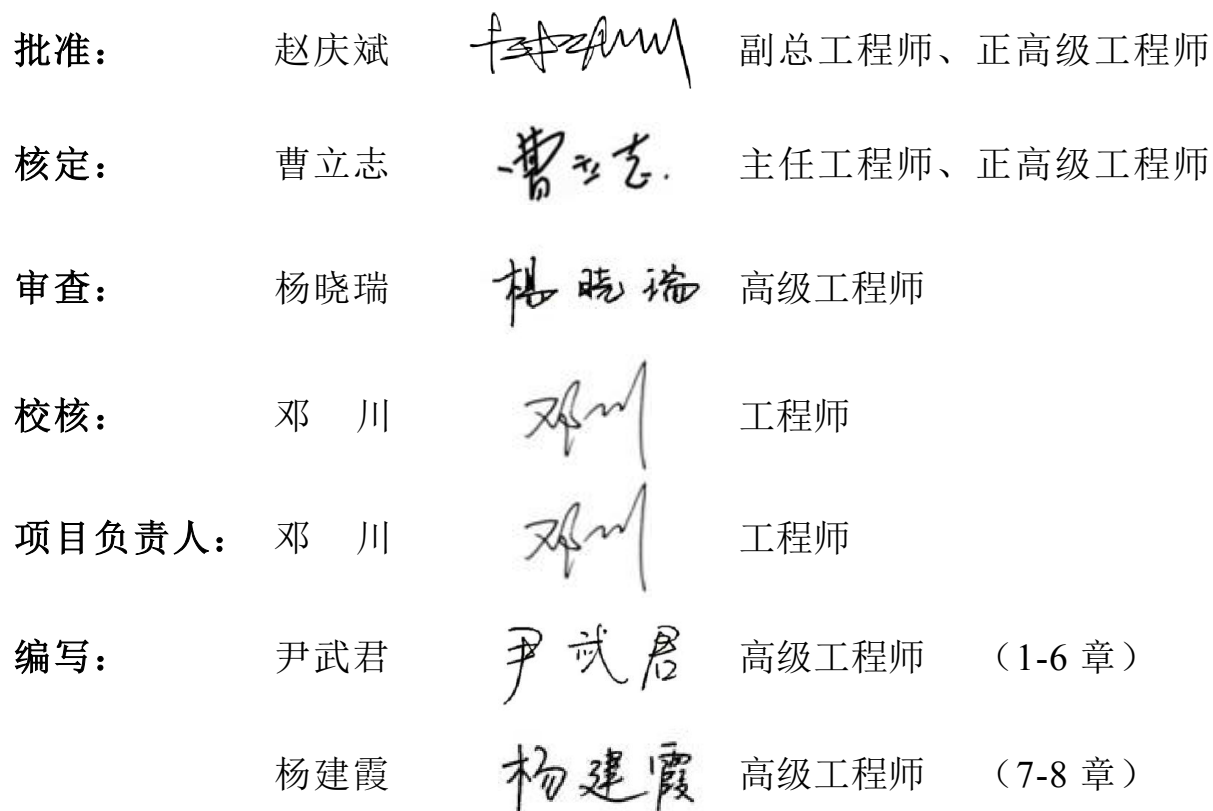 批准： 赵庆斌 副总工程师、正高级工程师
核定： 曹立志 曹立志 主任工程师、正高级工程师
审查： 杨晓瑞 杨晓瑞 高级工程师
校核： 邓 川 邓川 工程师
项目负责人： 邓 川 邓川 工程师
编写： 尹武君 尹武君 高级工程师 （1-6 章）
杨建霞 杨建霞 高级工程师 （7-8 章）